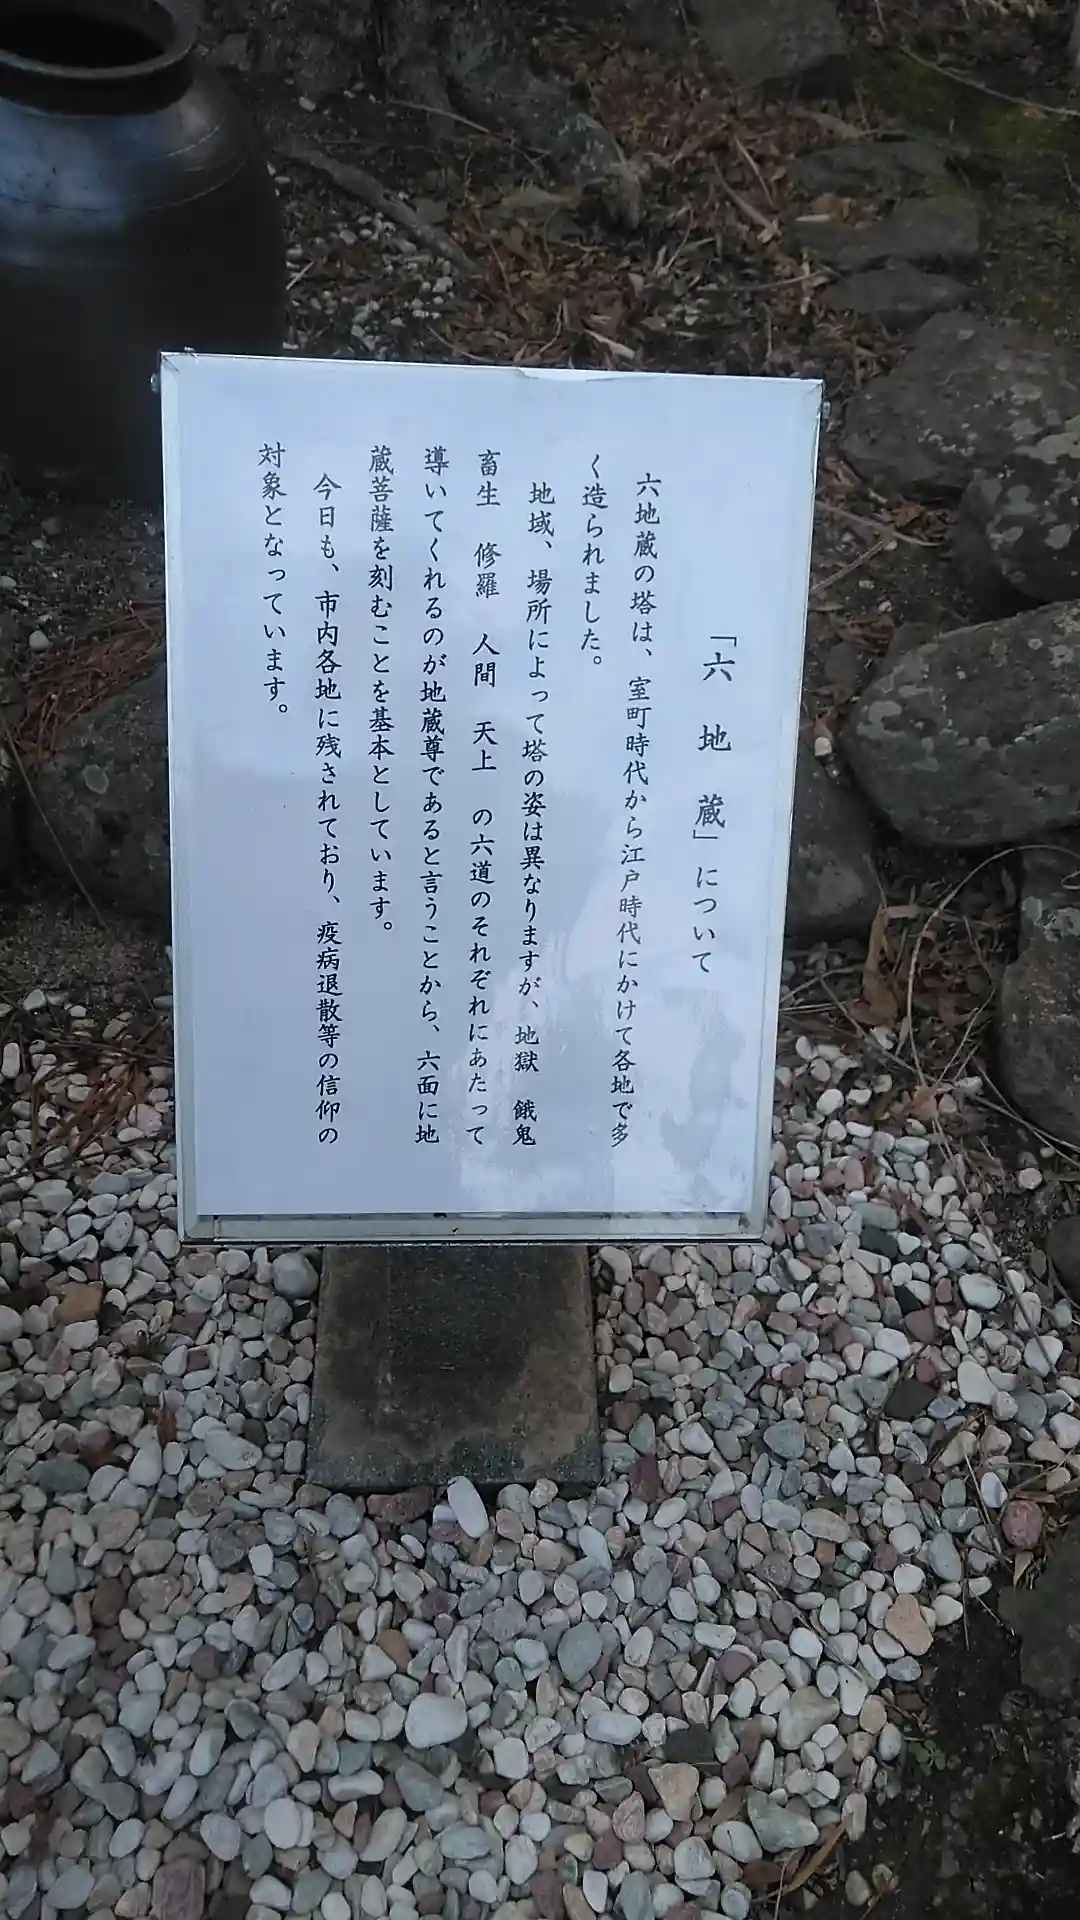 「六地蔵」について
六地蔵の塔は、室町時代から江戸時代にかけて各地で多
く造られました。
地域、場所によって塔の姿は異なりますが、地獄 餓鬼
畜生 修羅 人間 天上 の六道のそれぞれにあたって
導いてくれるのが地蔵尊であると言うことから、六面に地
蔵菩薩を刻むことを基本としています。
今日も、市内各地に残されており、疫病退散等の信仰の
対象となっています。